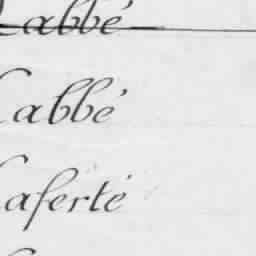 Labbé
Labbé
Laferté